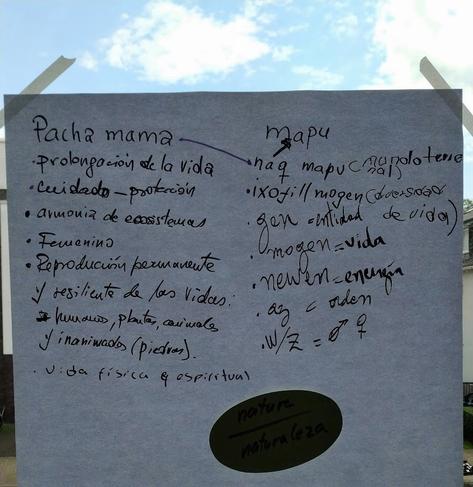 Pacha mama
• prolongación de la vida
• cuidado – protección
• armonia de ecosistemas
• Femenino
• Reprodución permanente
y resiliente de las vidas:
humanos, plantas, animales
y inanimados (piedras).
• vida física y espiritual
mapu
naq mapu (mundo terre
nal)
• ixofill mogen (diversidad
de vida)
• gen = entidad
• mogen = vida
• newen = energía
• az = orden
• W/Z = ♂ ♀
nature
naturaleza